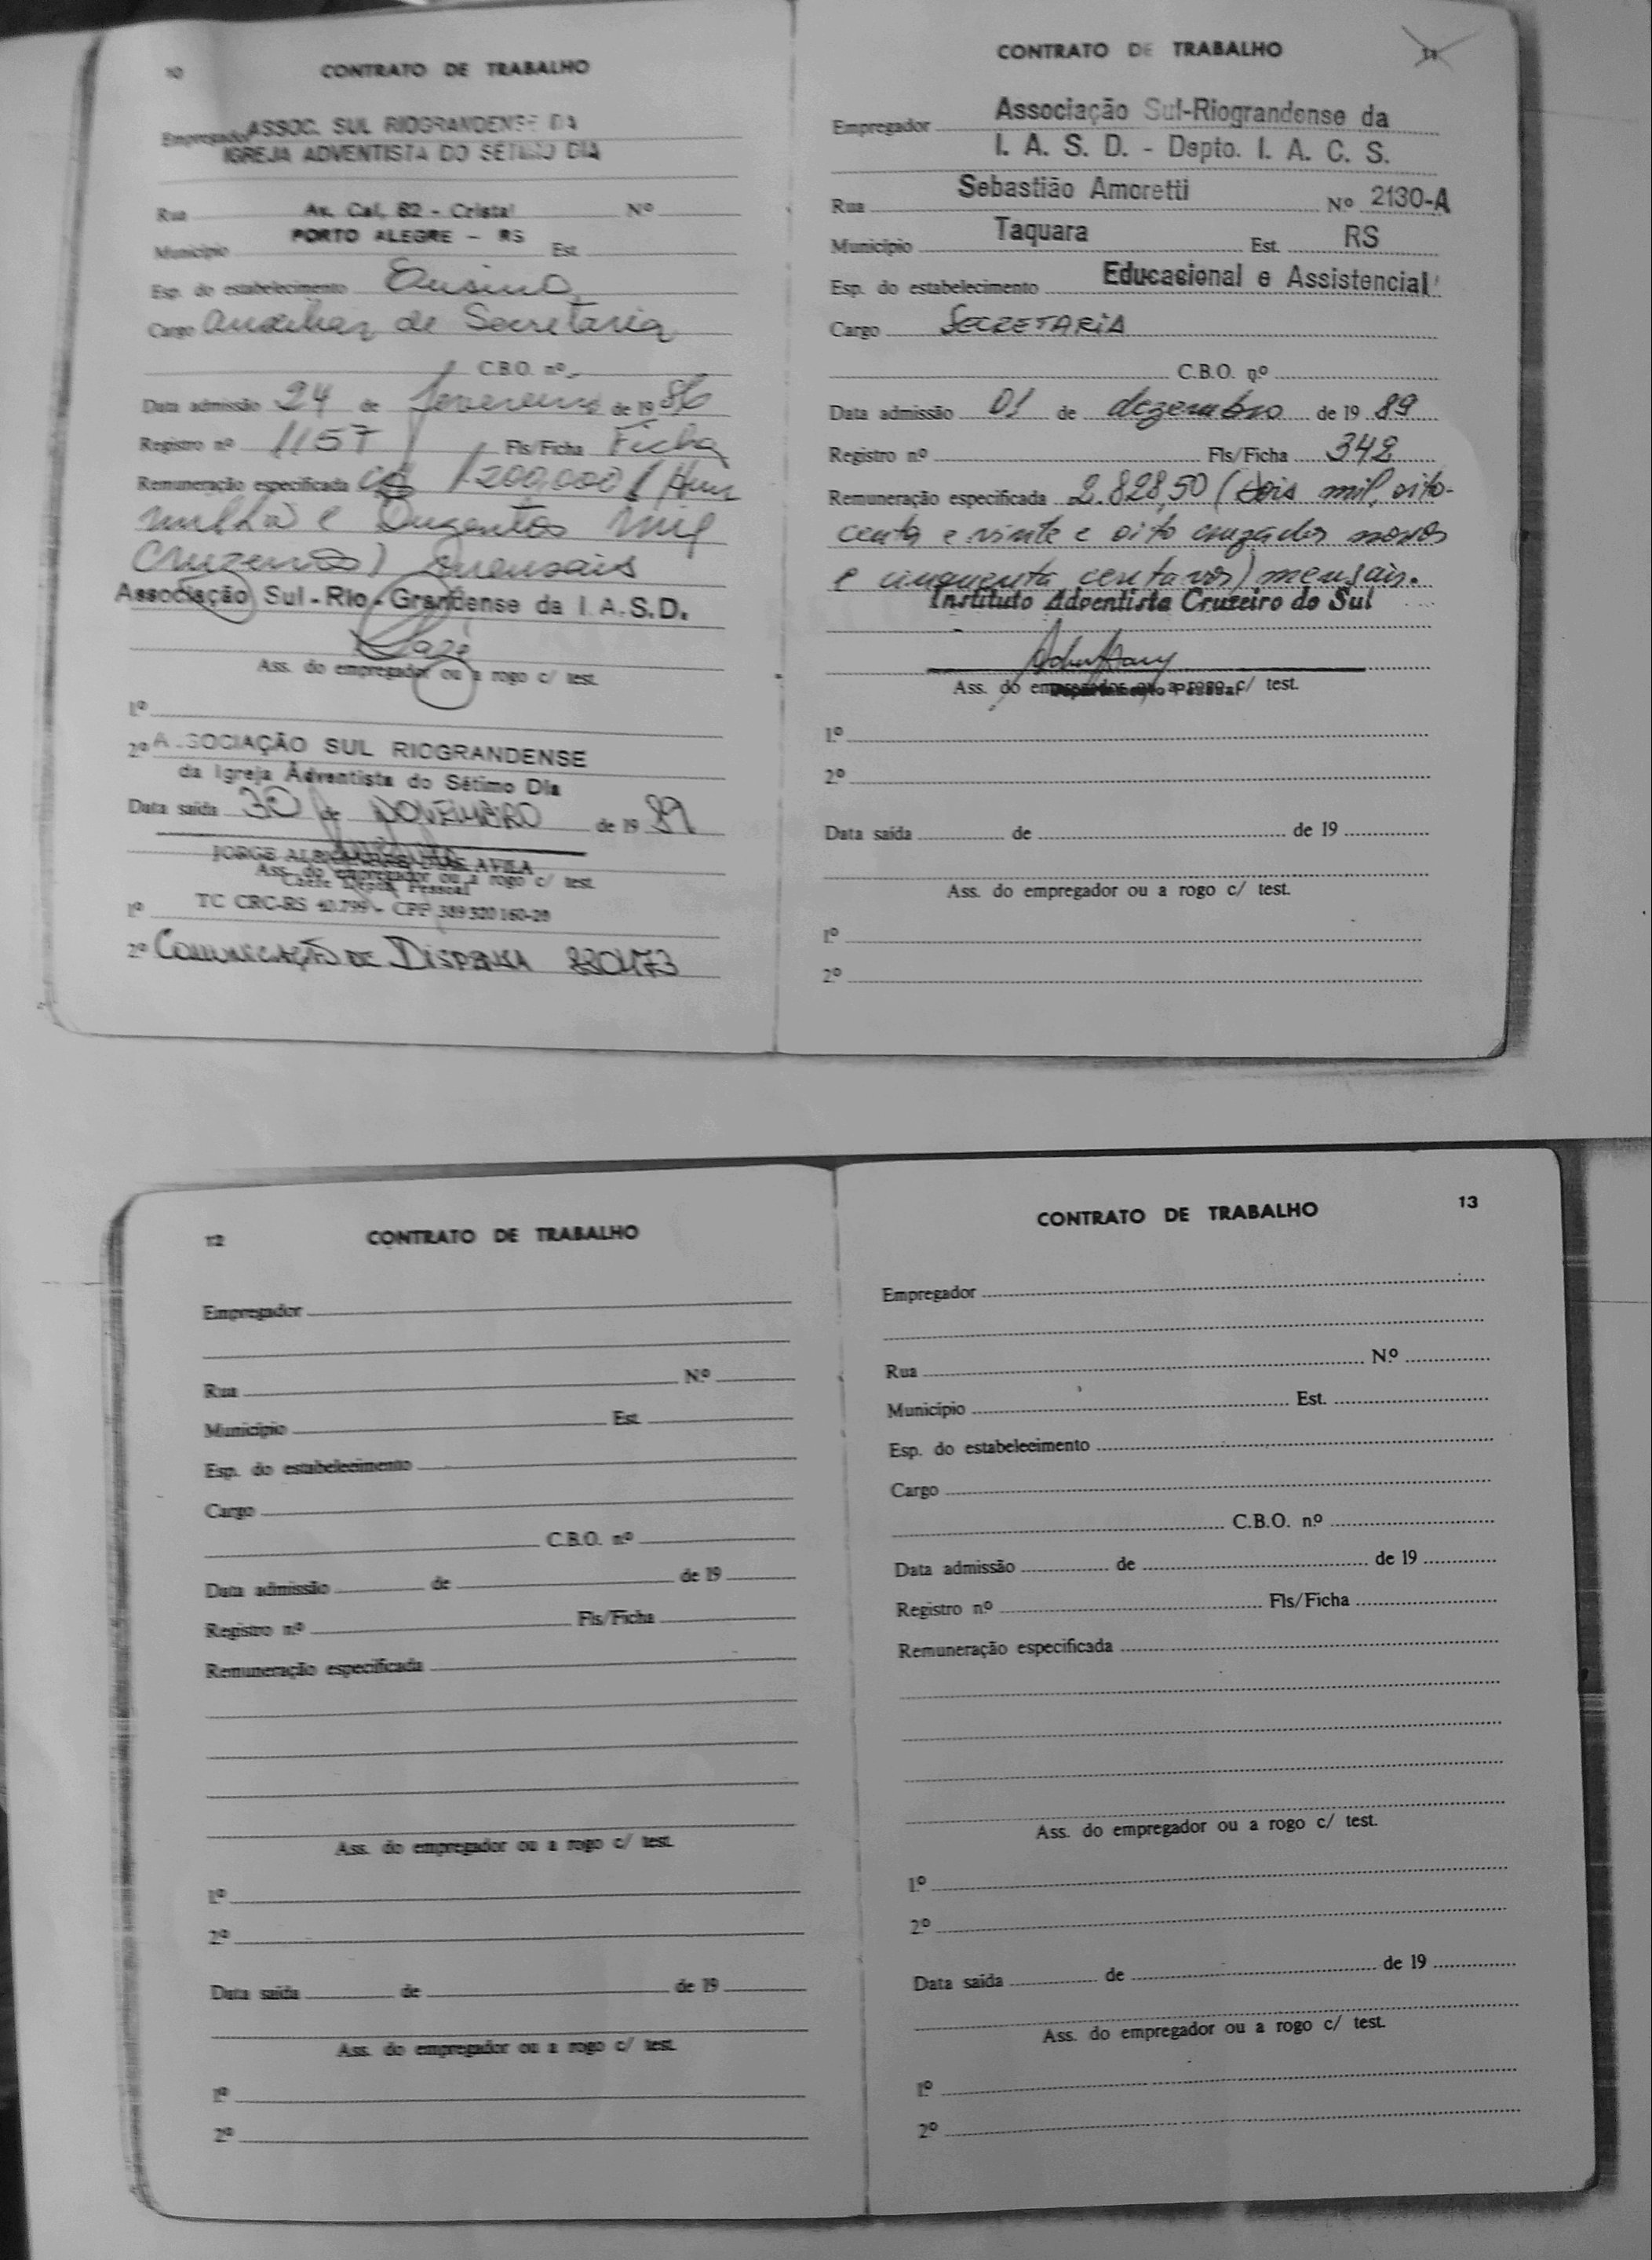 10 CONTRATO DE TRABALHO
Empregador ASSOC. SUL RIOGRANDENSE DA
IGREJA ADVENTISTA DO SÉTIMO DIA
Rua Av. Cai, 82 - Cristal Nº
Município PORTO ALEGRE - RS Est.
Esp. do estabelecimento Ensino
Cargo Auxiliar de Secretaria
C.B.O. nº
Data admissão 24 de fevereiro de 1986
Registro nº 1157 Fls/Ficha Ficha
Remuneração especificada 1200.000 (Hum
milhão e Duzentos mil
Cruzeiros) mensais
Associação Sul-Rio-Grandense da I.A.S.D.
Ass. do empregador ou a rogo c/ test.
1º
2º ASSOCIAÇÃO SUL RIOGRANDENSE
da Igreja Adventista do Sétimo Dia
Data saída 30 de NOVEMBRO de 1989
JORGE AVILA
Ass. do empregador ou a rogo c/ test.
Pessoal
1º TC CRC-RS 40.799 - CPF 389320160-20
2º COMUNICAÇÃO DE DISPENSA 880473
CONTRATO DE TRABALHO 11
Empregador Associação Sul-Riograndense da
I. A. S. D. - Depto. I. A. C. S.
Rua Sebastião Amoretti Nº 2130-A
Município Taquara Est. RS
Esp. do estabelecimento Educasional e Assistencial
Cargo SECRETARIA
C.B.O. nº
Data admissão 01 de dezembro de 1989
Registro nº Fls/Ficha 342
Remuneração especificada 2.828,50 (dois mil, oito-
centa e vinte e oito cruzados novos
e cinquenta centavos) mensais.
Instituto Adventista Cruzeiro do Sul
Ass. do empregador ou a rogo c/ test.
Departamento Pessoal
1º
2º
Data saída de de 19
Ass. do empregador ou a rogo c/ test.
1º
2º
12 CONTRATO DE TRABALHO
Empregador
Rua Nº
Município Est.
Esp. do estabelecimento
Cargo
C.B.O. nº
Data admissão de de 19
Registro nº Fls/Ficha
Remuneração especificada
Ass. do empregador ou a rogo c/ test.
1º
2º
Data saída de de 19
Ass. do empregador ou a rogo c/ test.
1º
2º
CONTRATO DE TRABALHO 13
Empregador
Rua Nº
Município Est.
Esp. do estabelecimento
Cargo
C.B.O. nº
Data admissão de de 19
Registro nº Fls/Ficha
Remuneração especificada
Ass. do empregador ou a rogo c/ test.
1º
2º
Data saída de de 19
Ass. do empregador ou a rogo c/ test.
1º
2º